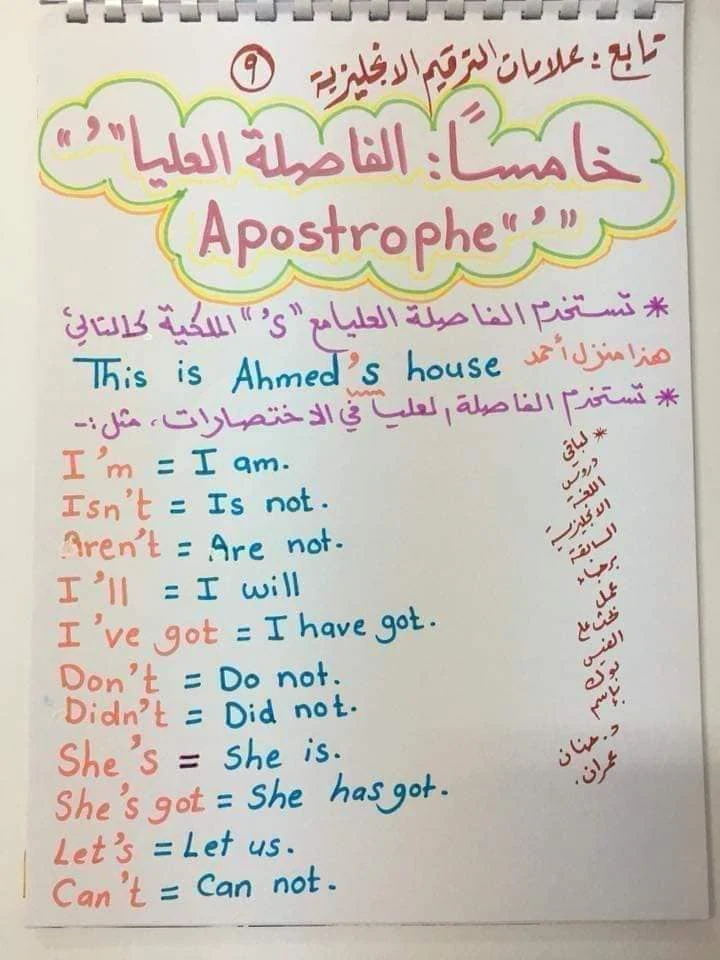 تابع: علامات الترقيم الانجليزية ٩
خامسًا: الفاصلة العليا "'"
Apostrophe "'"
* تستخدم الفاصلة العليا مع "'s" الملكية كالتالي
This is Ahmed's house هذا منزل أحمد
* تستخدم الفاصلة العليا في الاختصارات، مثل:-
I'm = I am.
Isn't = Is not.
Aren't = Are not.
I'll = I will
I've got = I have got.
Don't = Do not.
Didn't = Did not.
She's = She is.
She's got = She has got.
Let's = Let us.
Can't = Can not.
* لباقي
دروس
اللغة
الانجليزية
السابقة
برجاء
عمل
بحث على
الفيس
بوك
بإسم
د. حنان
عمران.